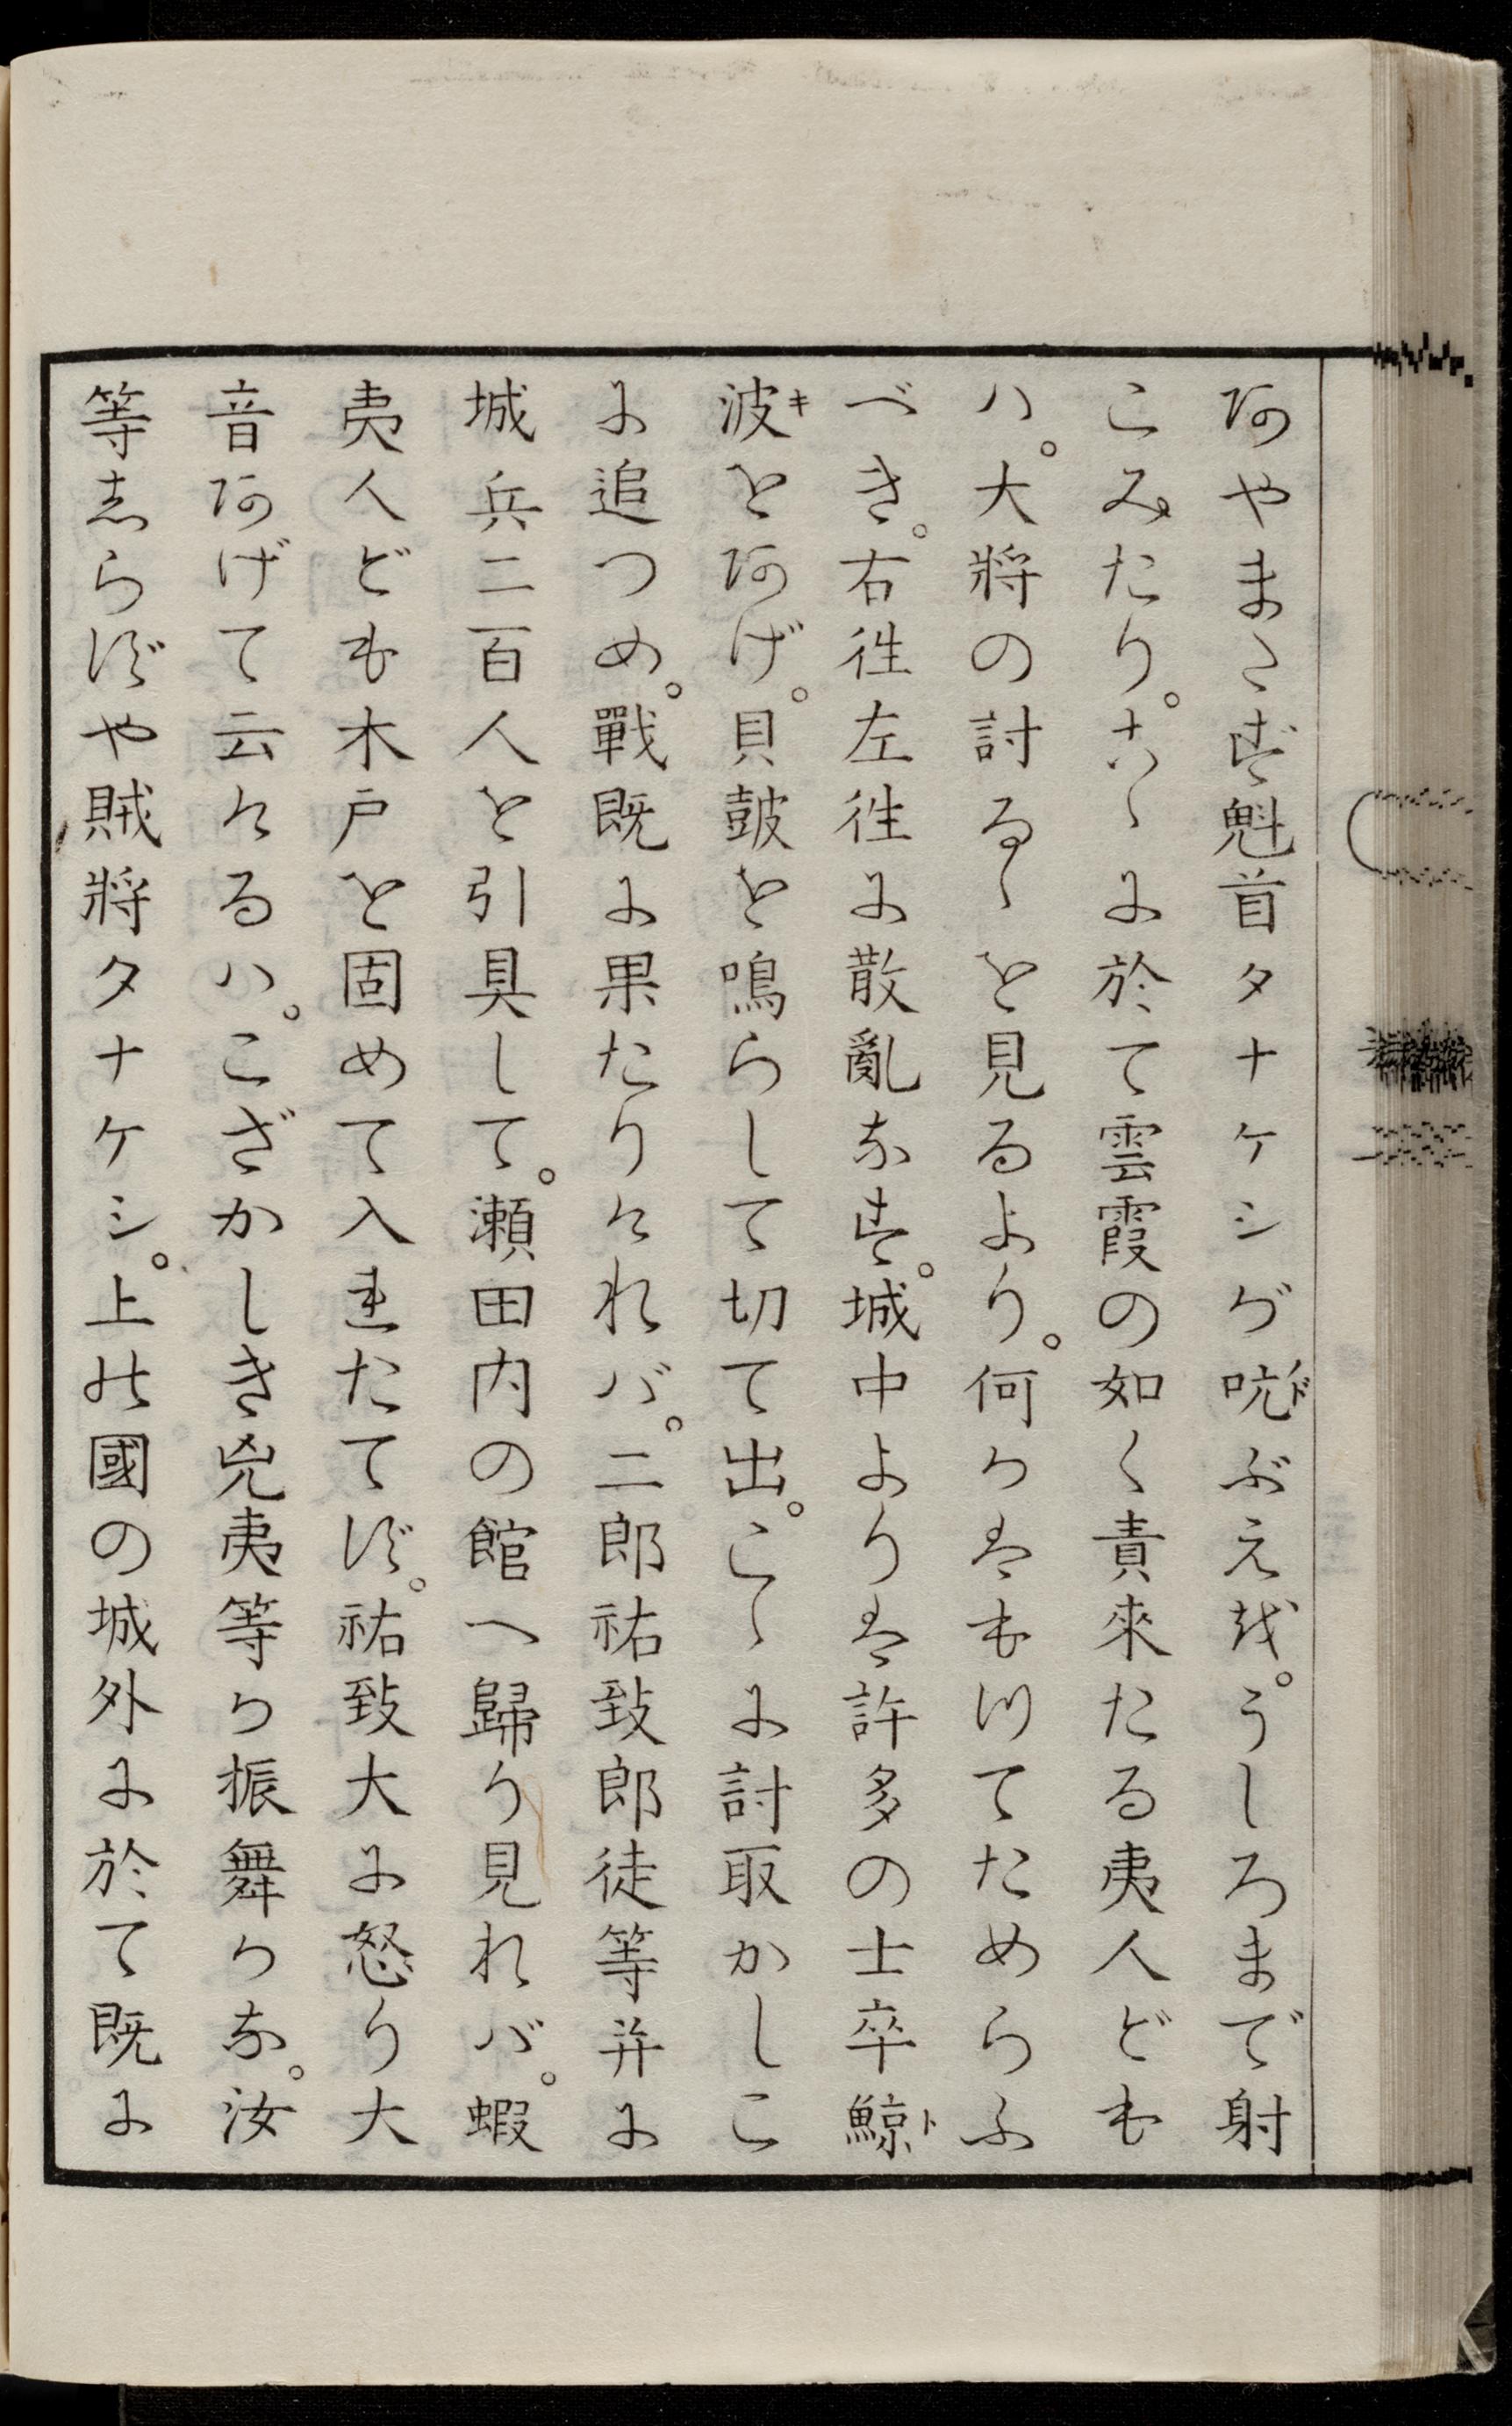 あやまたず魁首タナケシガ吭ぶえを。うしろまで射
こみたり。さしもに於て雲霞の如く責來たる夷人ども
ハ。大將の討るゝを見るより。何かはもつてためらふ
べき。右徃左徃に散亂なす。城中よりは許多の士卒鯨
波をあげ。貝鼓を鳴らして切て出。こゝに討取かしこ
に追つめ。戰既に果たりければ。二郎祐致郎徒等并に
城兵二百人を引具して。瀬田内の館へ歸り見れバ。蝦
夷人ども木戸を固めて入れたてず。祐致大に怒り大
音あげて云けるハ。こざかしき兇夷等か振舞かな。汝
等しらずや賊將タナケシ。上の國の城外に於て既に